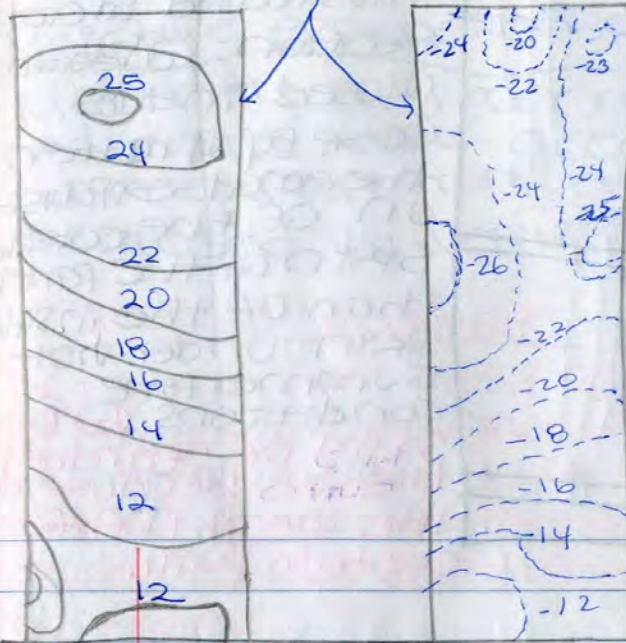 25
24
22
20
18
16
14
12
12
-24
-20
-22
-23
-24
-24
-25
-26
-22
-20
-18
-16
-14
-12